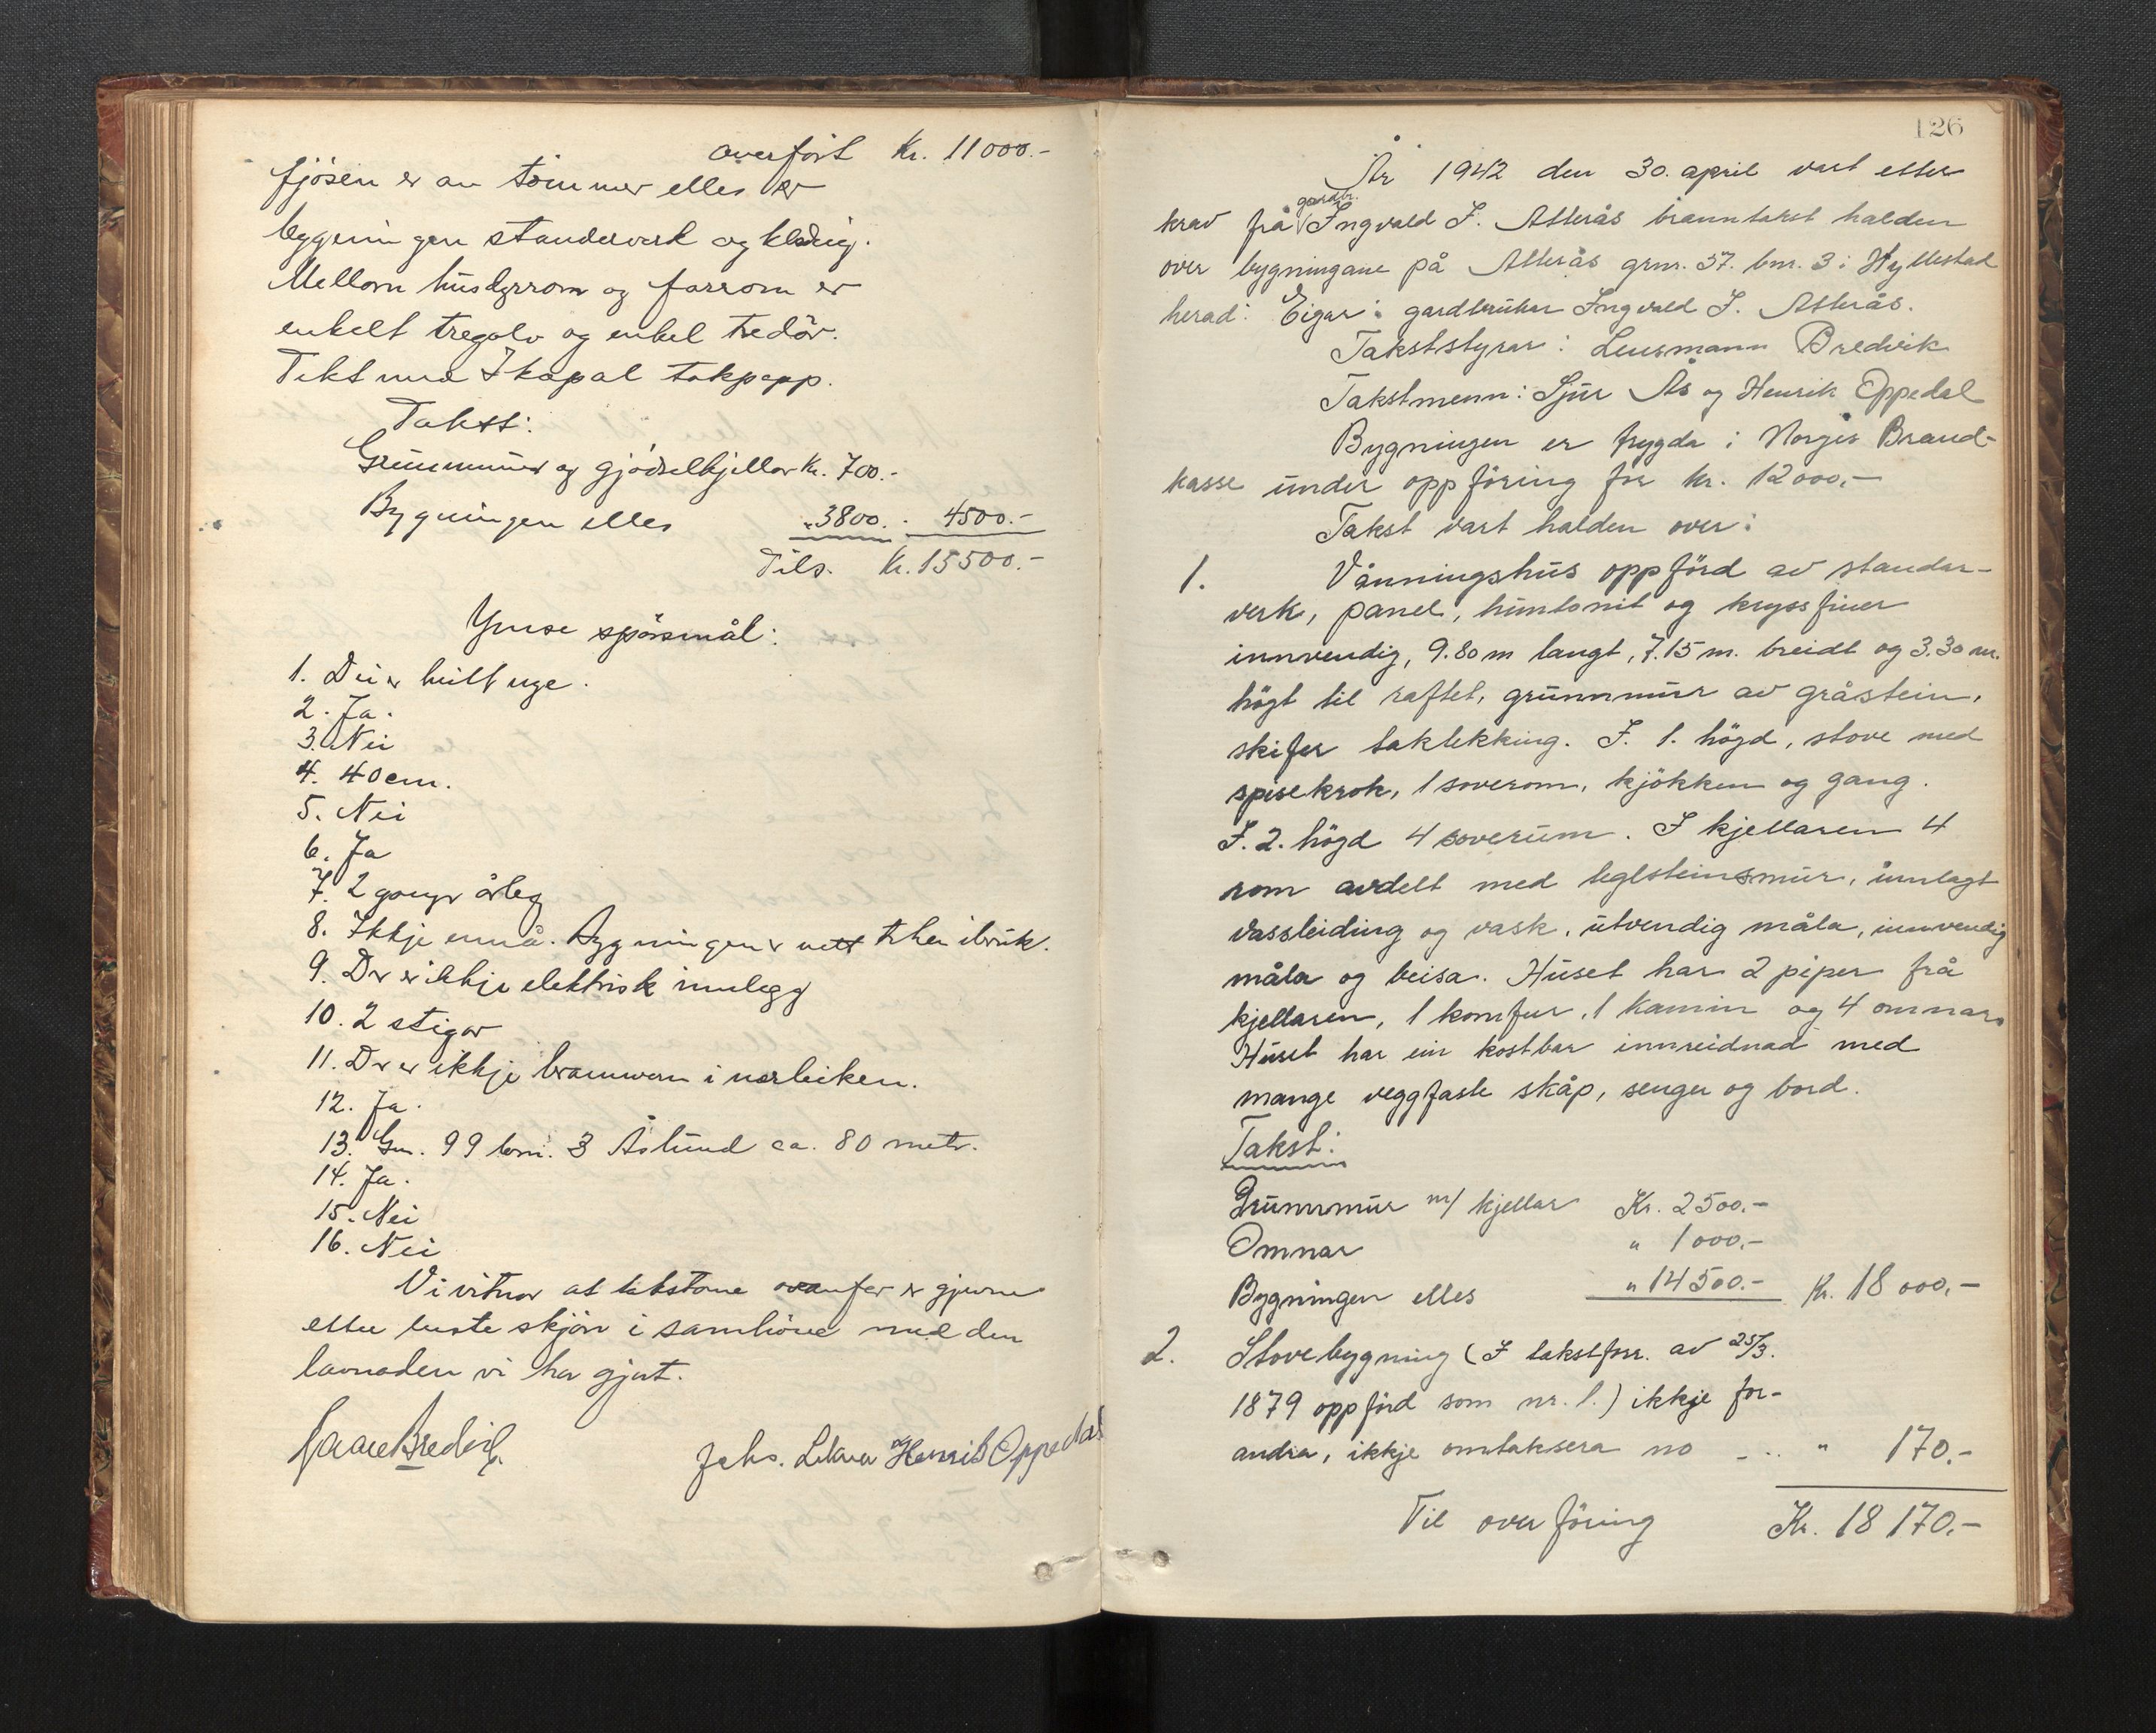 overfört Kr. 11000.-
fjösen er av tömmer elles er
bygnin gen standerverk og kledning.
Mellom husdyrrom og forrom er
enkelt tregolv og enkel tredör.
Tekt med Ikopal takpapp.
Takst:
Grunnmur og gjödselkjellar Kr. 700.-
Bygningen elles " 3800.- 4500.-
Tils. Kr. 15500.-
Ymse spörsmål:
1. Dei er heilt nye.
2. Ja.
3. Nei
4. 40 cm.
5. Nei
6. Ja
7. 2 gonger årleg
8. Ikkje ennå. Bygningen er nett teken i bruk.
9. Der er ikkje elektrisk innlegg
10. 2 stigar
11. Der er ikkje brannvern i nærleiken.
12. Ja.
13. Gnr. 99 bnr. 3 Åslund ca. 80 meter.
14. Ja.
15. Nei
16. Nei
Vi vitnar at takstane ovanfor er gjevne
etter beste skjön i samhöve med den
lovnaden vi har gjort.
Bredvik
Johs. Henrik Oppedal
126
År 1942 den 30. april vart etter
krav frå gardbr. Ingvald I. Atterås branntakst halden
over bygningane på Atterås grnr. 37. bnr. 3 i Hyllestad
herad: Eigar: gardbrukar Ingvald I. Atterås.
Takststyrar: Lensmann Bredvik
Takstmenn: Sjur Ås og Henrik Oppedal
Bygningen er trygda i Norges Brand-
kasse under oppföring for kr. 12000,-
Takst vart halden over:
1. Våningshus oppförd av standar-
verk, panel, huntonit og kryssfiner
innvendig, 9.80 m langt, 7.15 m. breidt og 3.30 m.
högt til raftet, grunnmur av gråstein,
skifer taktekking. I. 1. högd, stove med
spisekrok, 1 soverom, kjökken og gang.
I. 2. högd 4 soverum. I kjellaren 4
rom avdelt med teglsteinsmur, innlagt
vassleiding og vask, utvendig måla, innvendig
måla og beisa. Huset har 2 piper frå
kjellaren, 1 komfur, 1 kamin og 4 omnar.
Huset har ein kostbar innreidnad med
mange veggfaste skåp, senger og bord.
Takst:
Grunnmur m/ kjellar Kr. 2500.-
Omnar " 1000.-
Bygningen elles " 14500.- Kr. 18 000,-
2. Stovebygning (I takstforr. av 25/3.
1879 oppförd som nr. 1.) ikkje for-
andra, ikkje omtaksera no - .. " 170.-
Til over föring Kr. 18 170.-